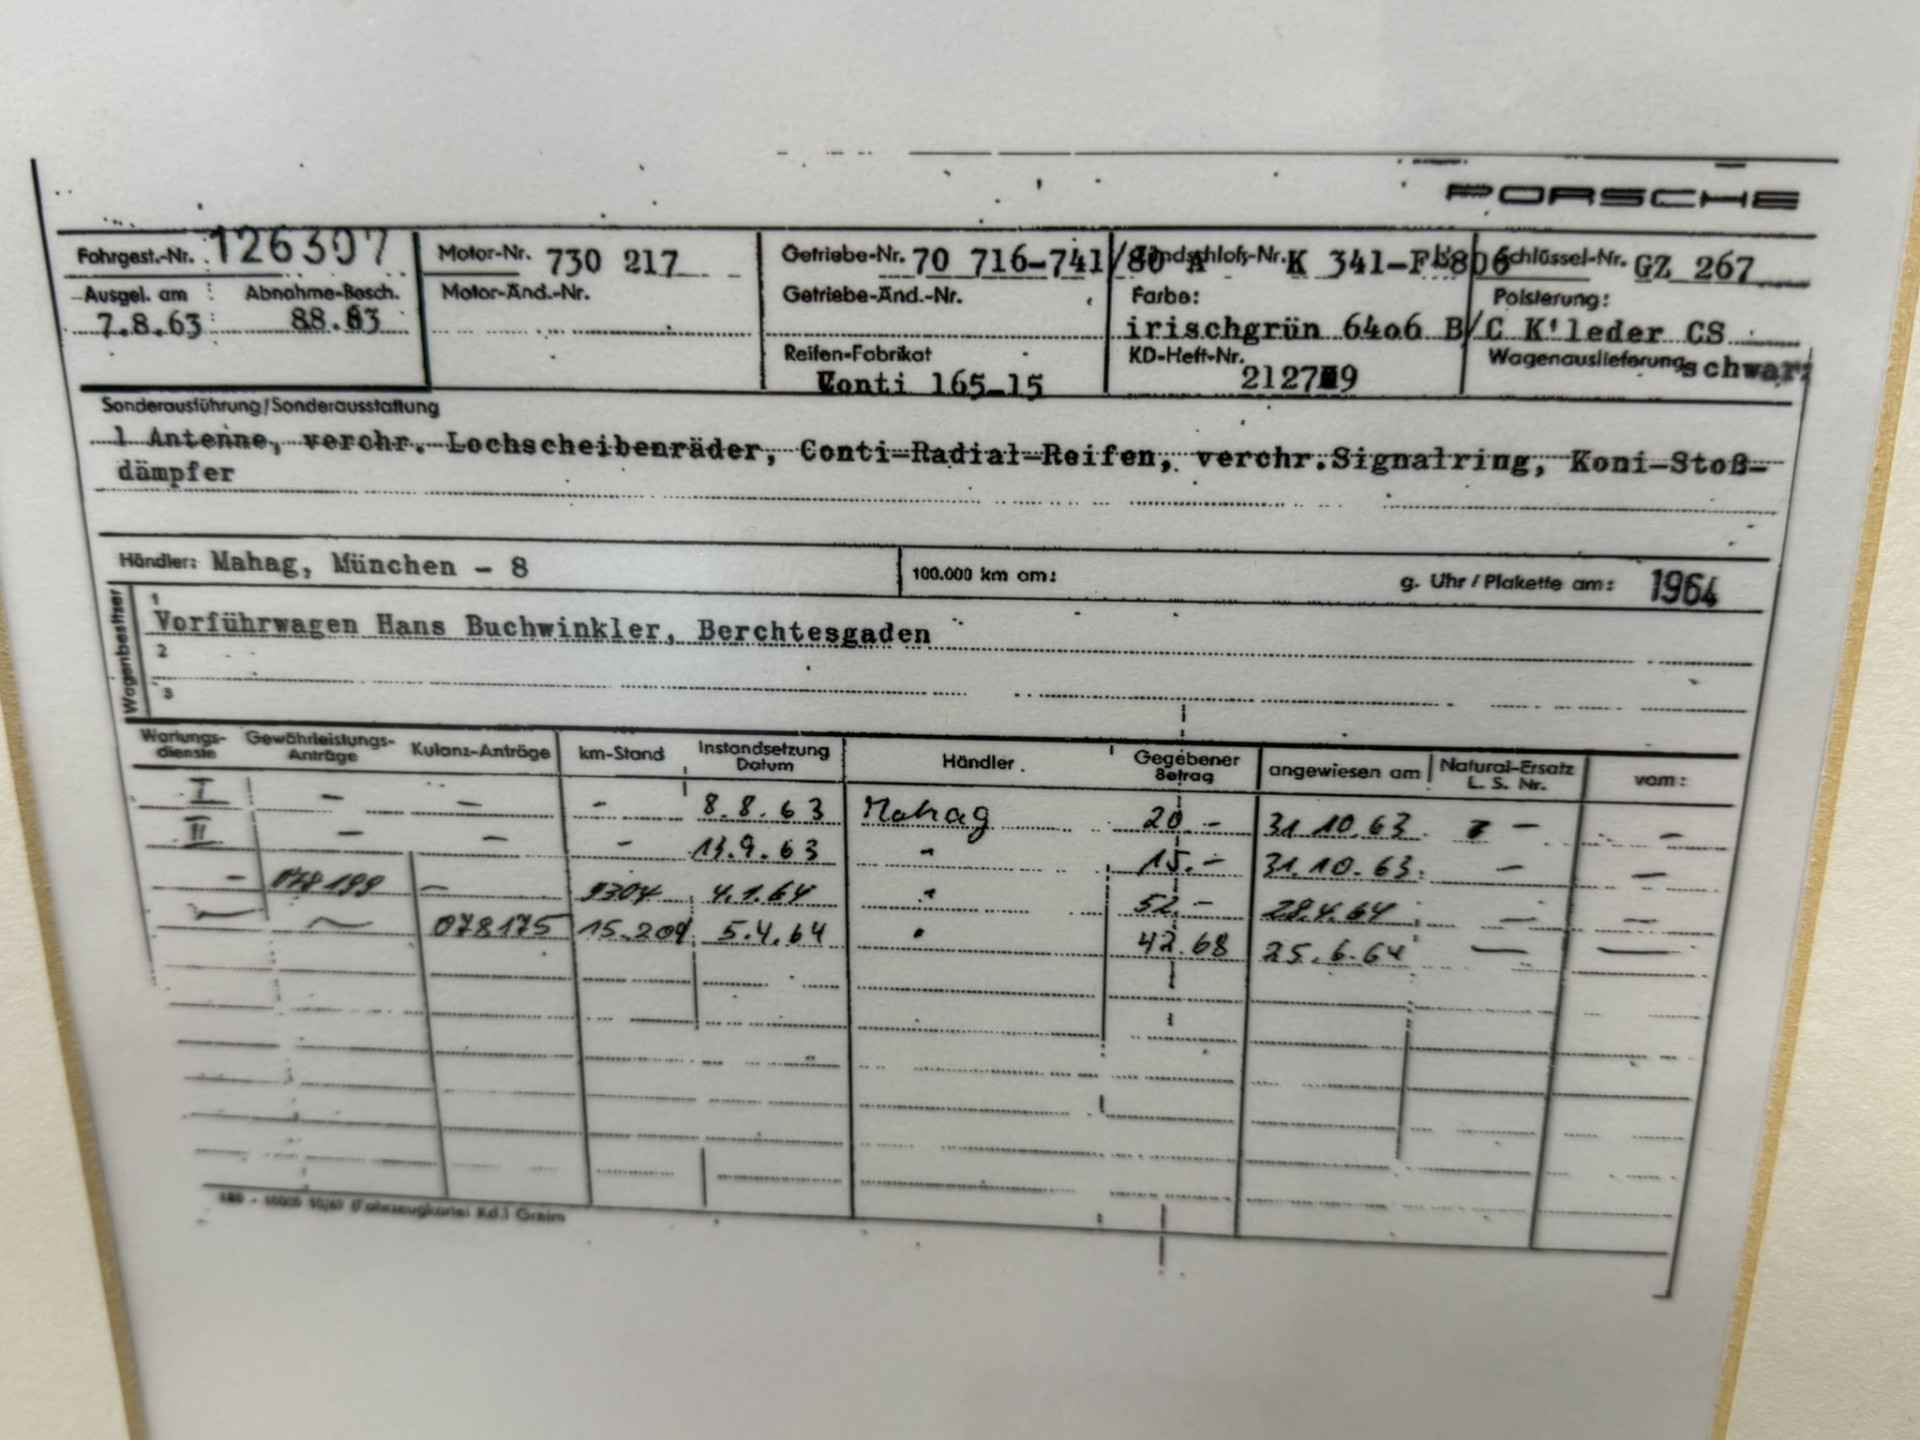 PORSCHE
Fahrgest.-Nr. 126307 Motor-Nr. 730 217 Getriebe-Nr. 70 716-741/80 A Zündschloß-Nr. K 341-F 806 Schlüssel-Nr. GZ 267
Ausgel. am Abnahme-Besch. Motor-Änd.-Nr. Getriebe-Änd.-Nr. Farbe: Polsterung:
7.8.63 88.63 irischgrün 64o6 B/C K'leder CS
Reifen-Fabrikat KD-Heft-Nr. Wagenauslieferung schwarz
Conti 165-15
Sonderausführung/Sonderausstattung
1 Antenne, verchr. Lochscheibenräder, Conti-Radial-Reifen, verchr.Signalring, Koni-Stoß-
dämpfer
Händler: Mahag, München - 8 100.000 km am: g. Uhr / Plakette am: 1964
Wagenbesitzer
1
Vorführwagen Hans Buchwinkler, Berchtesgaden
2
3
Wartungs-dienste Gewährleistungs-Anträge Kulanz-Anträge km-Stand Instandsetzung Datum Händler Gegebener Betrag angewiesen am Natural-Ersatz L. S. Nr. vom:
I - - - 8.8.63 Mahag 20.- 31.10.63 - -
II - - - 13.9.63 " 15.- 31.10.63 - -
- 078199 - 9304 4.1.64 " 52.- 28.4.64 - -
- - 078175 15.209 5.4.64 " 42.68 25.6.64 - -
(Fahrzeugkartei Kd.)